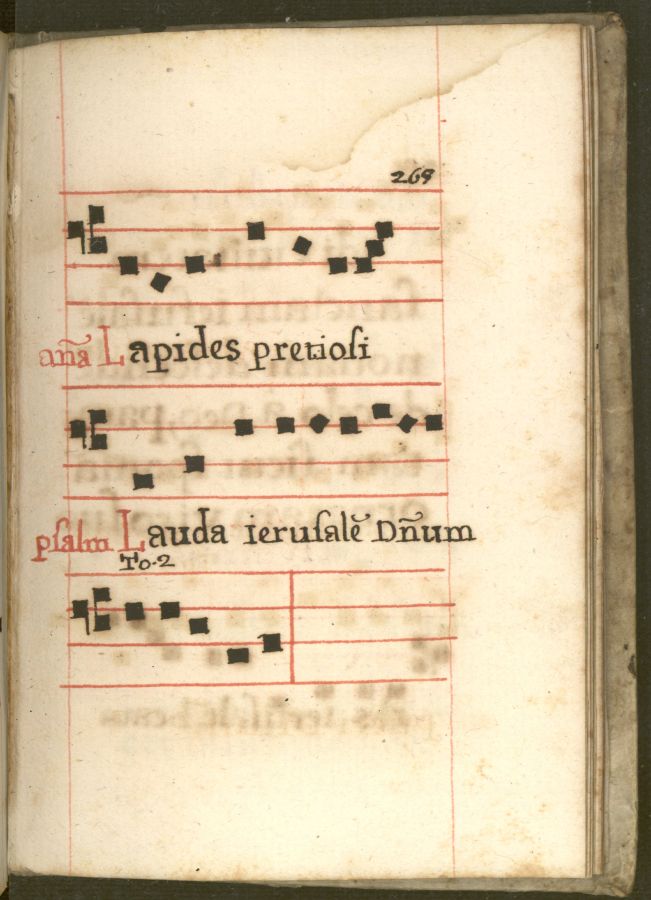 269
aña Lapides pretiosi
psalm Lauda ierusalẽ Dñum
To. 2